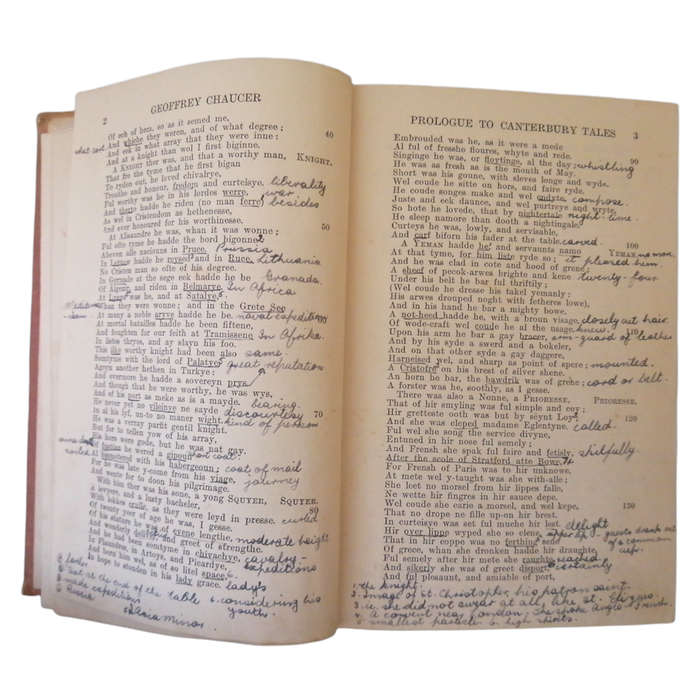 2 GEOFFREY CHAUCER
Of ech of hem, so as it semed me,
what sort And whiche they weren, and of what degree; 40
And eek in what array that they were inne:
And at a knight than wol I first biginne.
A KNIGHT ther was, and that a worthy man, KNIGHT.
That fro the tyme that he first bigan
To ryden out, he loved chivalrye,
Trouthe and honour, fredom and curteisye. liberality
Ful worthy was he in his lordes werre, war.
And therto hadde he riden (no man ferre) besides
As wel in Cristendom as hethenesse,
And ever honoured for his worthinesse. 50
At Alisaundre he was, whan it was wonne;
Ful ofte tyme he hadde the bord bigonne
Aboven alle naciouns in Pruce. Prussia
In Lettow hadde he reysed and in Ruce, Lithuania
No Cristen man so ofte of his degree.
In Gernade at the sege eek hadde he be Granada
Of Algezir, and riden in Belmarye. In Africa
At Lyeys was he, and at Satalye,
Whan they were wonne; and in the Grete See
At many a noble aryve hadde he be. naval expedition
At mortal batailles hadde he been fiftene,
And foughten for our feith at Tramissene In Afrika.
In listes thryes, and ay slayn his foo.
This ilke worthy knight had been also same.
Somtyme with the lord of Palatye, great reputation
Ageyn another hethen in Turkye:
And evermore he hadde a sovereyn prys.
And though that he were worthy, he was wys,
And of his port as meke as is a mayde. bearing.
He never yet no vileinye ne sayde discourtesy 70
In al his lyf, un-to no maner wight. kind of person
He was a verray parfit gentil knight.
But for to tellen yow of his array,
His hors were gode, but he was nat gay.
Of fustian he wered a gipoun or coat.
Al bismotered with his habergeoun; coat of mail
For he was late y-come from his viage, journey
And wente for to doon his pilgrimage.
With him ther was his sone, a yong SQUYER, SQUYER.
A lovyere, and a lusty bacheler, 80
With lokkes crulle, as they were leyd in presse. curled
Of twenty yeer of age he was, I gesse.
Of his stature he was of evene lengthe, moderate height
And wonderly deliver, and greet of strengthe.
And he had been somtyme in chivachye, cavalry
In Flaundres, in Artoys, and Picardye, expeditions
And born him wel, as of so litel space,
In hope to stonden in his lady grace. lady's
2 Sat at the end of the table 6. considering his
3 made expeditions youth.
4 Russia
Asia Minor
PROLOGUE TO CANTERBURY TALES 3
Embrouded was he, as it were a mede
Al ful of fresshe floures, whyte and rede. 90
Singinge he was, or floytinge, al the day; whistling
He was as fresh as is the month of May.
Short was his goune, with sleves longe and wyde.
Wel coude he sitte on hors, and faire ryde.
He coude songes make and wel endyte, compose.
Juste and eek daunce, and wel purtreye and wryte.
So hote he lovede, that by nightertale night-time.
He sleep namore than dooth a nightingale.
Curteys he was, lowly, and servisable,
And carf biforn his fader at the table. carved. 100
A YEMAN hadde he, and servaunts namo YEMAN no more.
At that tyme, for him liste ryde so; it pleased him.
And he was clad in cote and hood of grene;
A sheef of pecok-arwes brighte and kene twenty-four
Under his belt he bar ful thriftily;
(Wel coude he dresse his takel yemanly:
His arwes drouped noght with fetheres lowe),
And in his hand he bar a mighty bowe.
A not-heed hadde he, with a broun visage. closely cut hair.
Of wode-craft wel coude he al the usage. knew. 110
Upon his arm he bar a gay bracer, arm-guard of leather
And by his syde a swerd and a bokeler,
And on that other syde a gay daggere,
Harneised wel, and sharp as point of spere; mounted.
A Cristofre on his brest of silver shene.
An horn he bar, the bawdrik was of grene; cord or belt.
A forster was he, soothly, as I gesse.
There was also a Nonne, a PRIORESSE, PRIORESSE.
That of hir smyling was ful simple and coy;
Hir gretteste ooth was but by sëynt Loy; 120
And she was cleped madame Eglentyne. called.
Ful wel she song the service divyne,
Entuned in hir nose ful semely;
And Frensh she spak ful faire and fetisly, skilfully.
After the scole of Stratford atte Bowe,
For Frensh of Paris was to hir unknowe.
At mete wel y-taught was she with-alle;
She leet no morsel from hir lippes falle,
Ne wette hir fingres in hir sauce depe.
Wel coude she carie a morsel, and wel kepe, 130
That no drope ne fille up-on hir brest.
In curteisye was set ful muche hir lest. delight
Hir over lippe wyped she so clene, upper lip guests drank out
That in hir coppe was no ferthing sene of a common
Of grece, whan she dronken hadde hir draughte, cup.
Ful semely after hir mete she raughte, reached
And sikerly she was of greet disport, certainty
And ful plesaunt, and amiable of port,
1. the knight.
2. Image of St. Christopher his patron saint.
3. i.e. she did not swear at all, like St. Eligius.
4. A convent near London. She spoke Anglo-French.
5. smallest particle 6. high spirits.